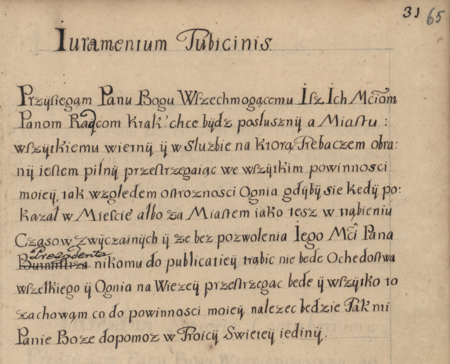 31 65
Iuramentum Tubicinis
Przÿsięgam Panu Bogu Wszechmogącemu Isz Ich Mciom
Panom Raÿcom Krak: chce bÿdz posłusznÿ a Miastu
wszÿtkiemu wiernÿ ÿ w Słuzbie na ktorą Trebaczem obra-
nÿ iestem pilnÿ przestrzegaiąc we wszÿtkim powinnosci
moieÿ, tak względem ostroznosci Ognia gdÿbÿ się kedÿ po-
kazał w Miescie albo za Miastem iako tesz w trąbieniu
Czasow zwÿczainÿch ÿ ze bez pozwolenia Iego Mci Pana
Prezÿdenta
nikomu do publicatieÿ trąbic nie bede Ochedostwa
wszelkiego ÿ Ognia na Wiezeÿ przestrzegac bede ÿ wszÿtko to
zachowam co do powinnosci moieÿ nalezec bedzie Tak mi
Panie Boze dopomoz w Troicÿ Swieteÿ iedinÿ.